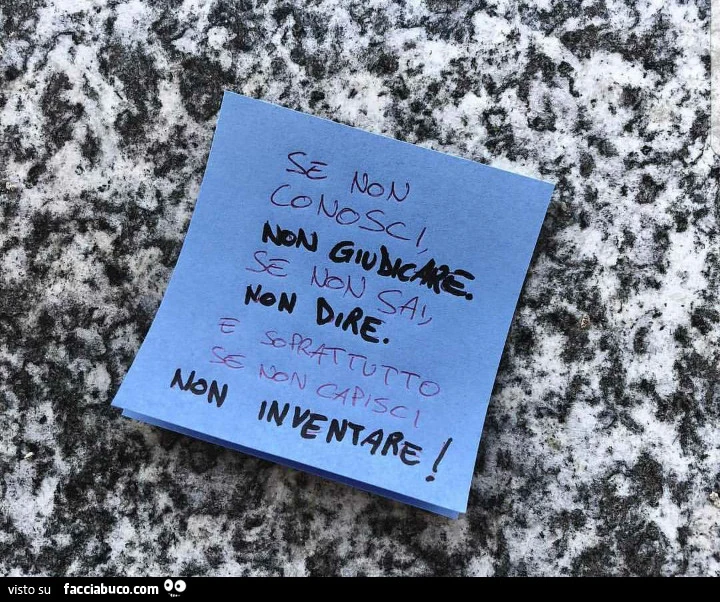 SE NON
CONOSCI,
NON GIUDICARE.
SE NON SAI,
NON DIRE.
E SOPRATTUTTO
SE NON CAPISCI
NON INVENTARE!
visto su facciabuco.com